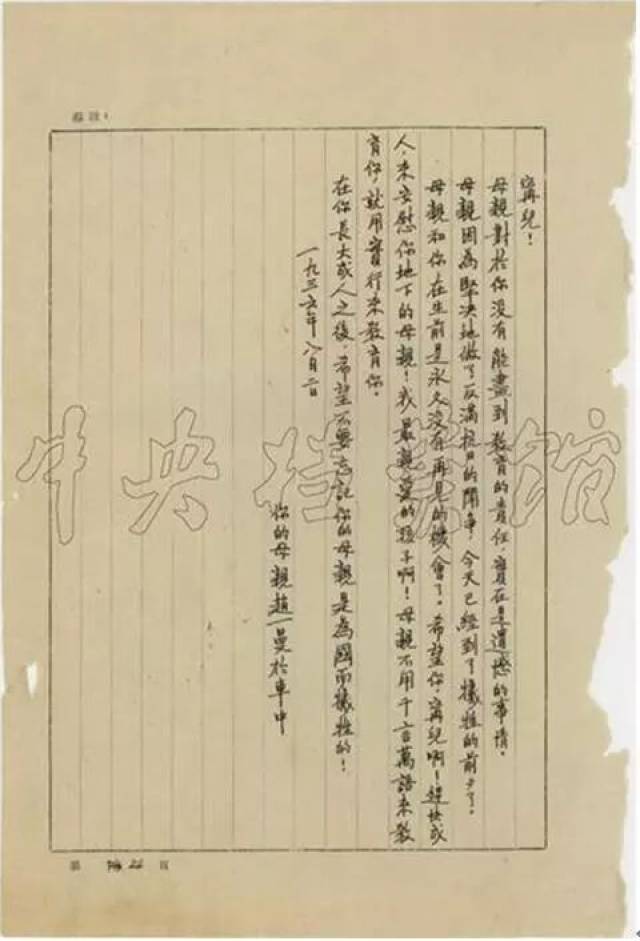 寗兒！
母親對於你没有能盡到教育的責任，實在是遺憾的事情。
母親因為堅决地做了反滿抗日的鬥爭，今天已經到了犧牲的前夕了。
母親和你在生前是永久没有再見的機會了。希望你，寗兒啊！趕快成
人，來安慰你地下的母親！我最親愛的孩子啊！母親不用千言萬語來教
育你，就用實行來教育你。
在你長大成人之後，希望不要忘記你的母親是為國而犧牲的！
一九三六年八月二日
你的母親趙一曼於車中
第 頁
中央档案馆